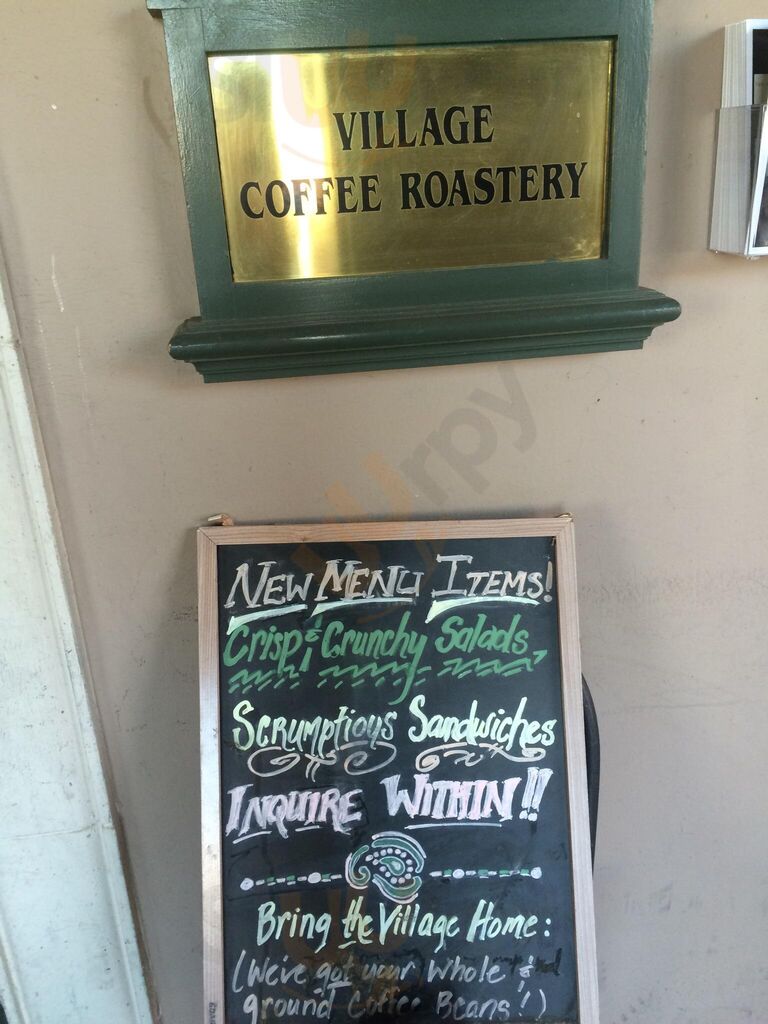 VILLAGE
COFFEE ROASTERY
NEW MENU ITEMS!
Crisp & Crunchy Salads
Scrumptious Sandwiches
INQUIRE WITHIN!!
Bring the Village Home:
(We've got your Whole &
ground Coffee Beans!)
wurpy